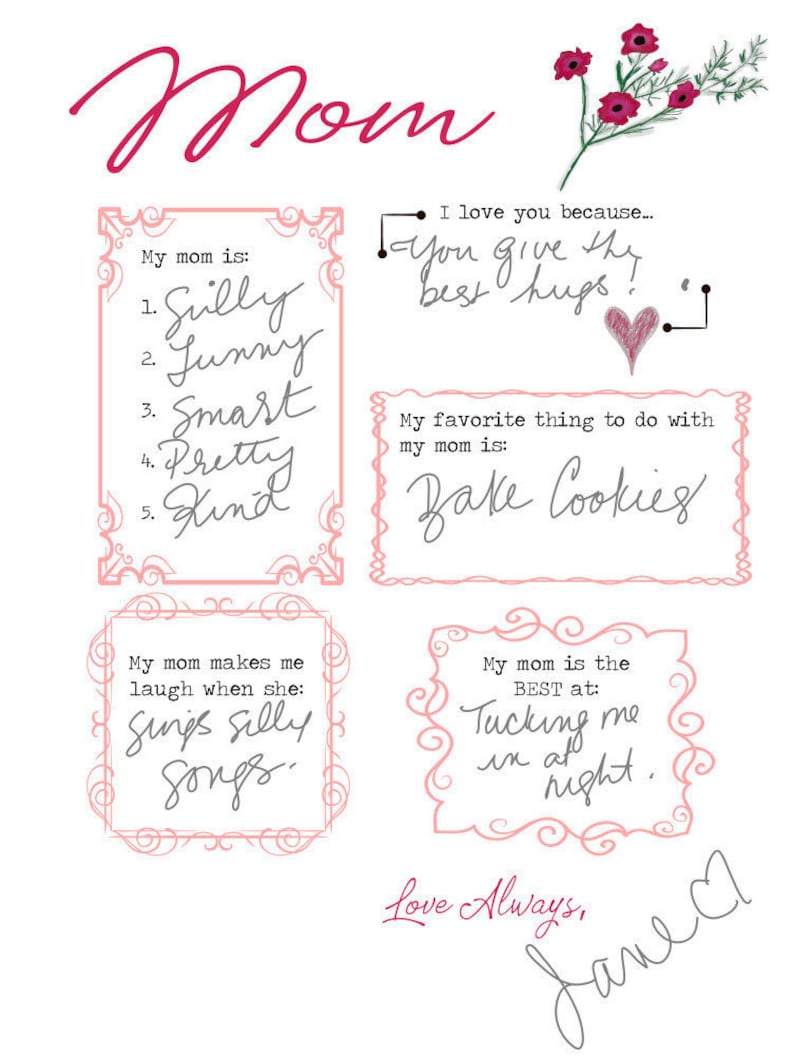 Mom
My mom is:
1. Silly
2. Funny
3. Smart
4. Pretty
5. Kind
I love you because...
You give the
best hugs!
My favorite thing to do with
my mom is:
Bake Cookies
My mom makes me
laugh when she:
Sings Silly
Songs.
My mom is the
BEST at:
Tucking me
in at
night.
Love Always,
Jane